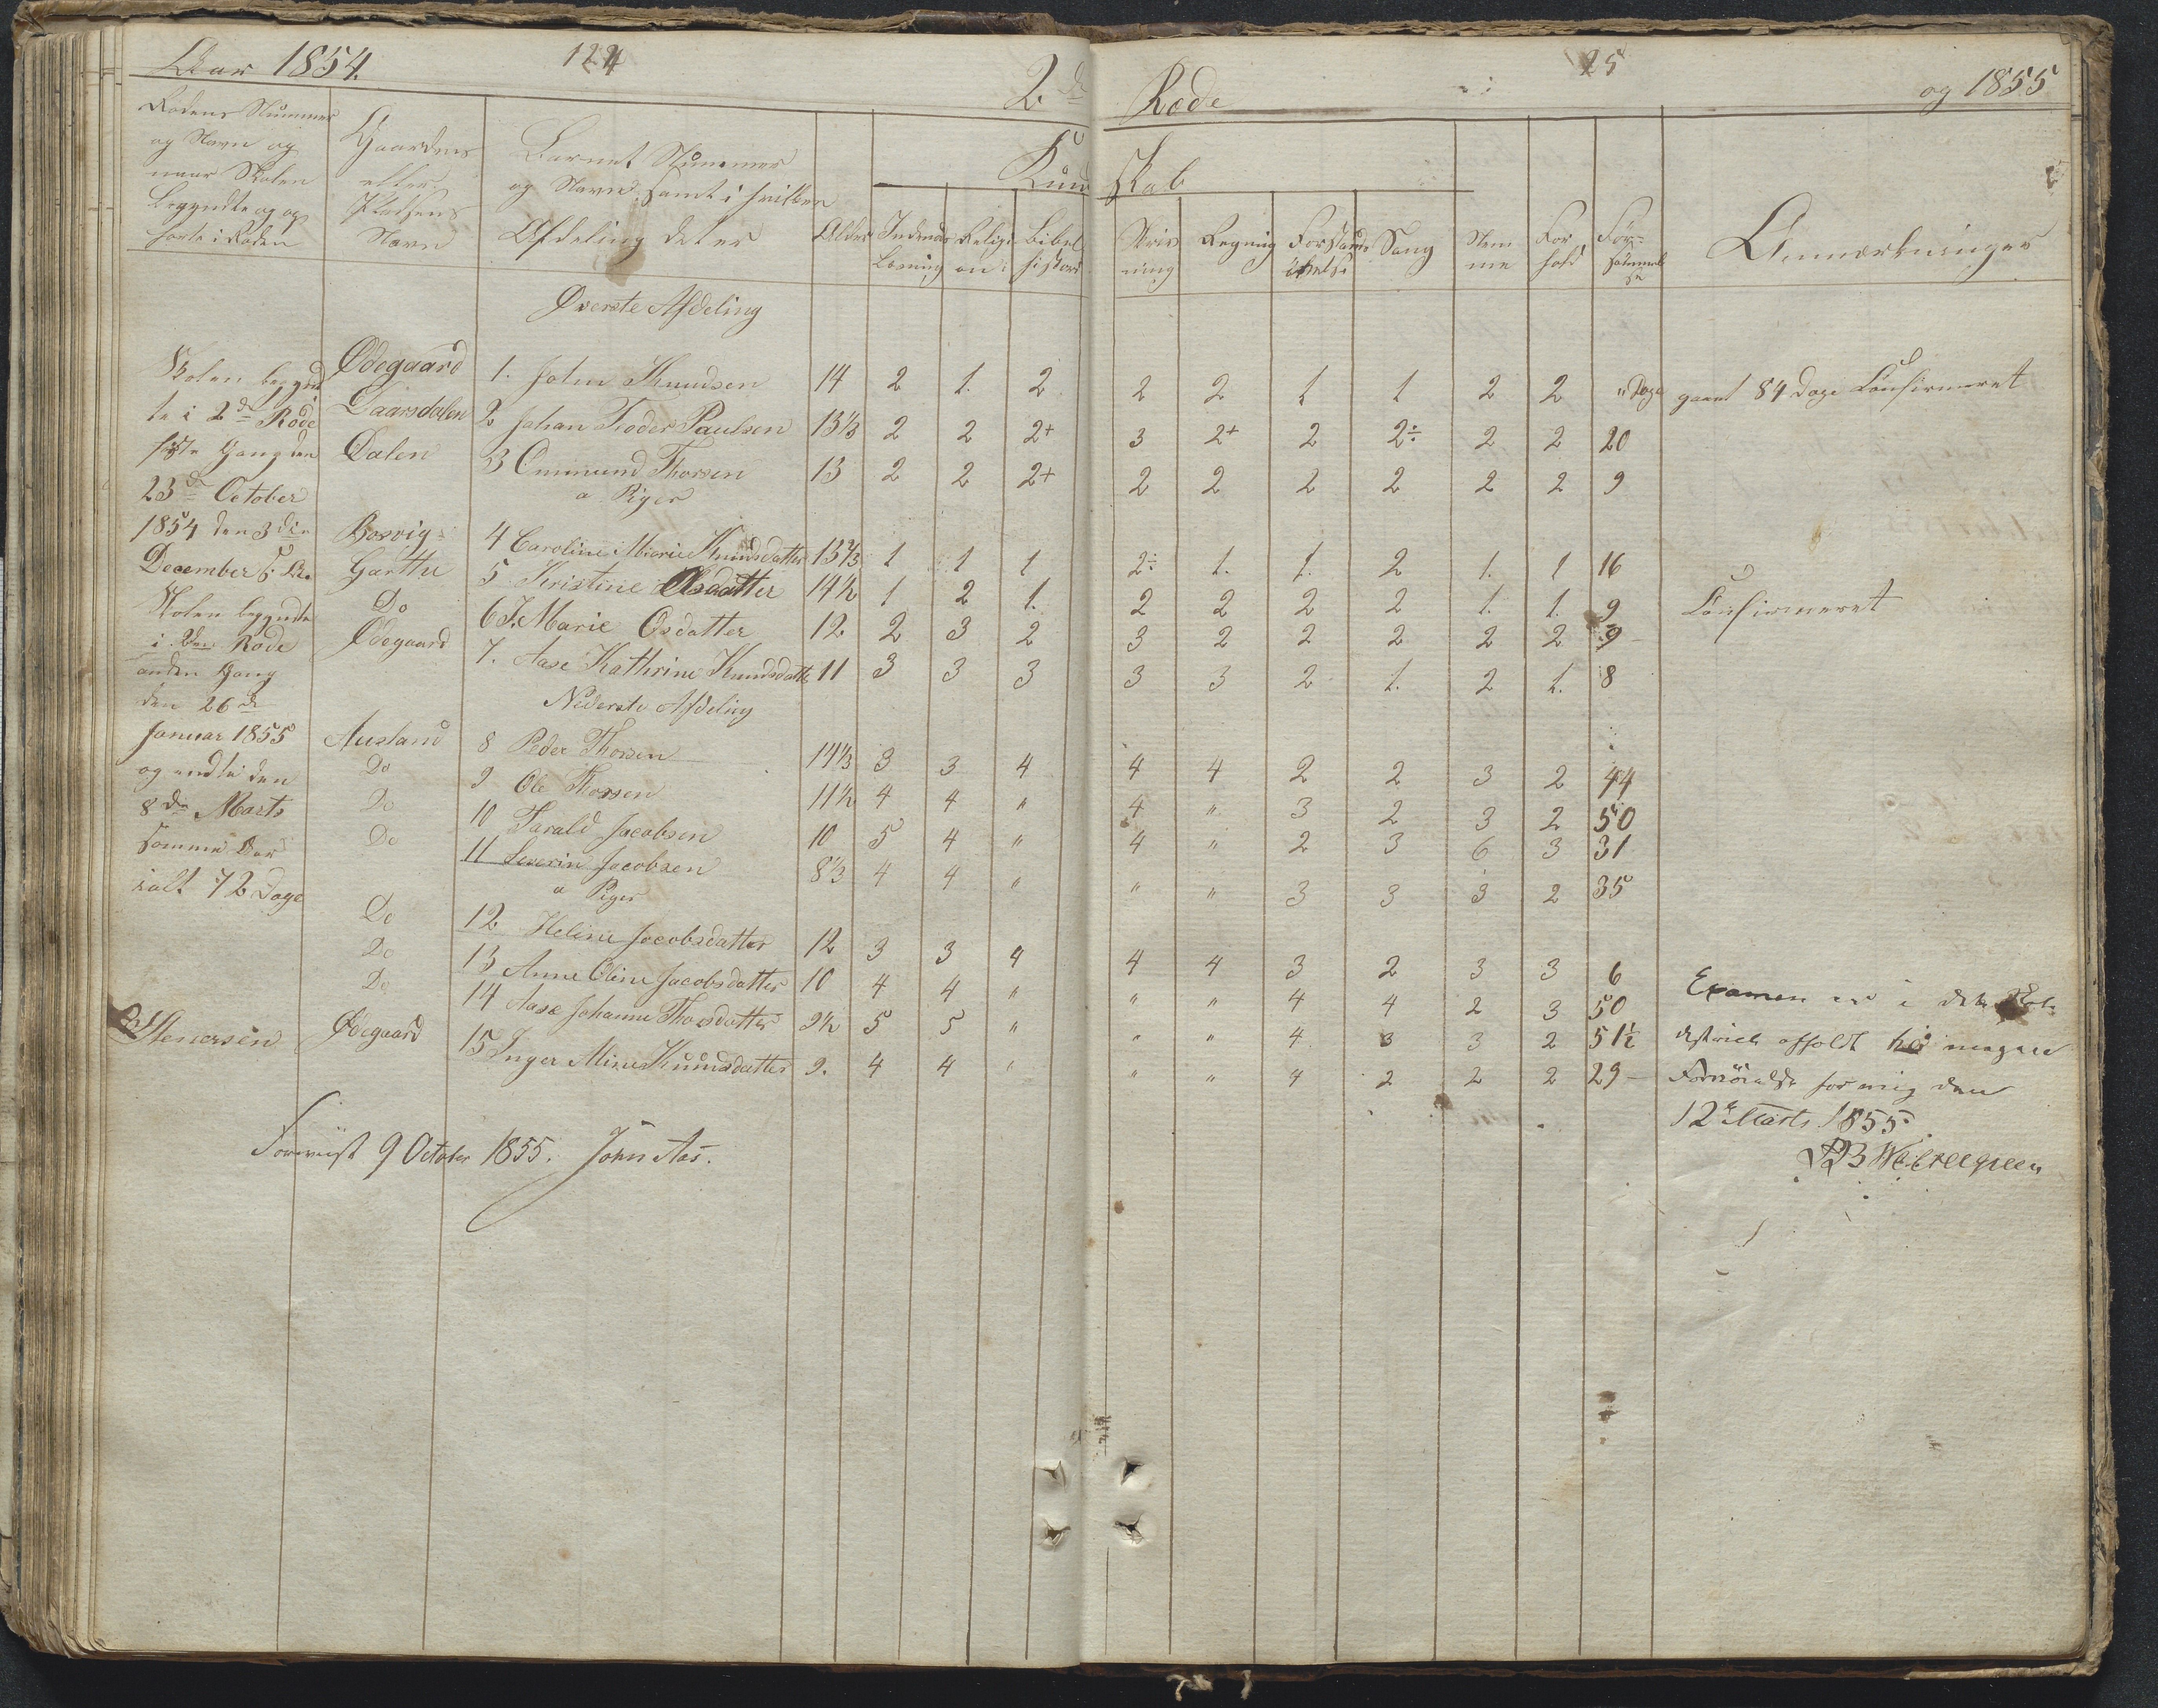 Aar 1854. 124 2den Rode 25 og 1855
Rodens Nummer og Navn og naar Skolen begyndte og op hørte i Roden
Gaardens eller Pladsens Navn
Barnet Nummer og Navn samt i hvilken Afdeling det er
Alder
Kundskab
Indenads Læsning
Religion
Bibel historie
Skrivning
Regning
Forstands øvelse
Sang
Nemme
Forhold
Forsømmelse
Anmærkninger
Øverste Afdeling
Skolen begynd
te i 2den Rode
første Gang den
23de October
1854 den 3die
December
Skolen begyndte
i 2den Rode
anden Gang
den 26de
Januar 1855
og endte den
8de Marts
samme Aar
ialt 72 Dage
S Stenersen
Ødegaard 1. John Knudsen 14 2 1. 2 2 2 1 1 2 2 " Dage gaaet 84 Dage Confirmeret
Daarsdalen 2 Johan Tioder Paulsen 13 1/3 2 2 2+ 3 2+ 2 2÷ 2 2 20
Dalen 3 Ommund Thorsen 13 2 2 2+ 2 2 2 2 2 2 9
a Piger
Bosvig 4 Caroline Marie Knudsdatter 13 2/3 1 1 1 2÷ 1. 1. 2 1. 1 16
Garthe 5 Kristine Osdatter 14 1/2 1 2 1. 2 2 2 2 1. 1. 9 Confirmeret
Do 6 J. Marie Osdatter 12 2 3 2 3 2 2 2 2 2 9
Ødegaard 7. Aase Kathrine Knudsdatter 11 3 3 3 3 3 2 1. 2 1. 8
Nederste Afdeling
Ausland 8 Peder Thorsen 14 1/3 3 3 4 4 4 2 2 3 2 44
Do 9 Ole Thorsen 11 1/2 4 4 " 4 " 3 2 3 2 50
Do 10 Tarald Jacobsen 10 5 4 " 4 " 2 3 6 3 31
Do 11 Severin Jacobsen 8 1/3 4 4 " " " 3 3 3 2 35
a Piger
Do 12 Heline Jacobsdatter 12 3 3 4 4 4 3 2 3 3 6
Do 13 Anne Oline Jacobsdatter 10 4 4 " " " 4 4 2 3 50
Do 14 Aase Johanne Thorsdatter 9 1/2 5 5 " " " 4 3 3 2 51 1/2
Ødegaard 15 Inger Mine Knudsdatter 9. 4 4 " " " 4 2 2 2 29
Examen er i dette Skole
district afholdt
for mig den
12te Marts 1855.
Foreviist 9 October 1855. John Aas.